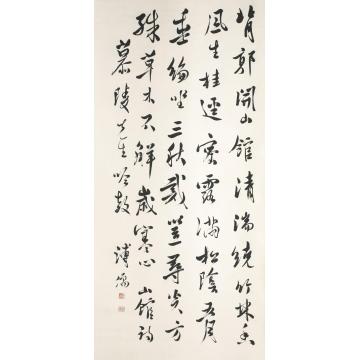 背郭開山館清湍繞竹林香
風生桂逕寒露滿松陰五月
垂綸坐三秋戴笠尋炎方
殊草木不鮮歲寒心 山館詩
慕陵先生吟教 溥儒